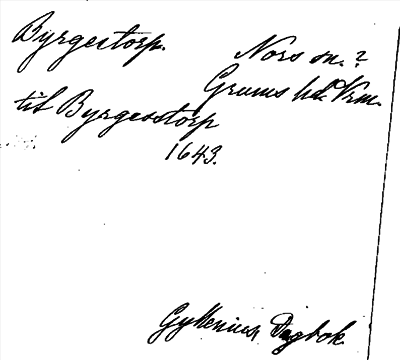 Byrgestorp.
Nors sn. ?
Grums hd. Vrm.
til Byrgesstorp
1643.
Gyllenius, Dagbok.